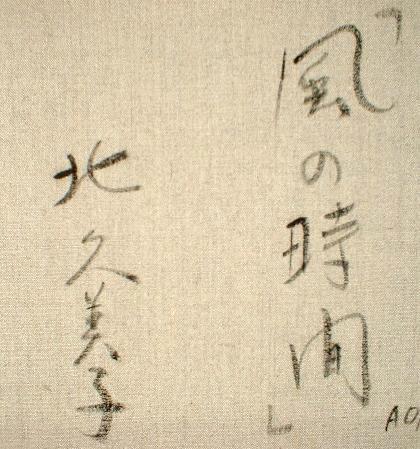 「風の時間」
北久美子
AO